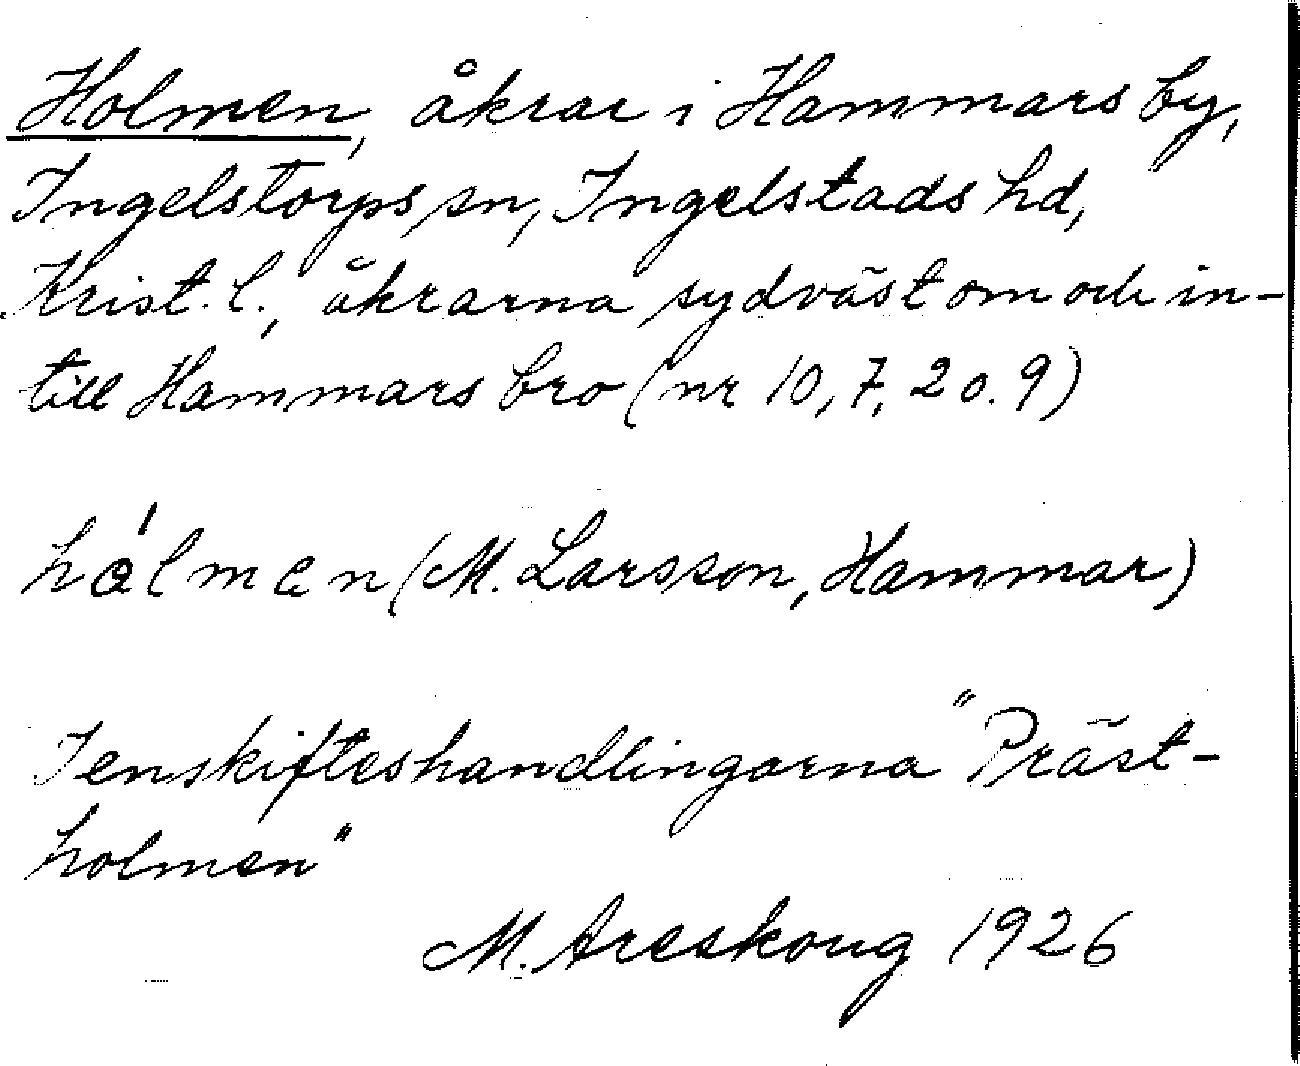 Holmen, åkrar i Hammars by,
Ingelstorps sn, Ingelstads hd,
Krist. l., åkrarna sydväst om och in-
till Hammars bro (nr 10, 7, 2 o. 9)
hólmen (M. Larsson, Hammar)
I enskifteshandlingarna "Präst-
holmen"
M. Areskoug 1926